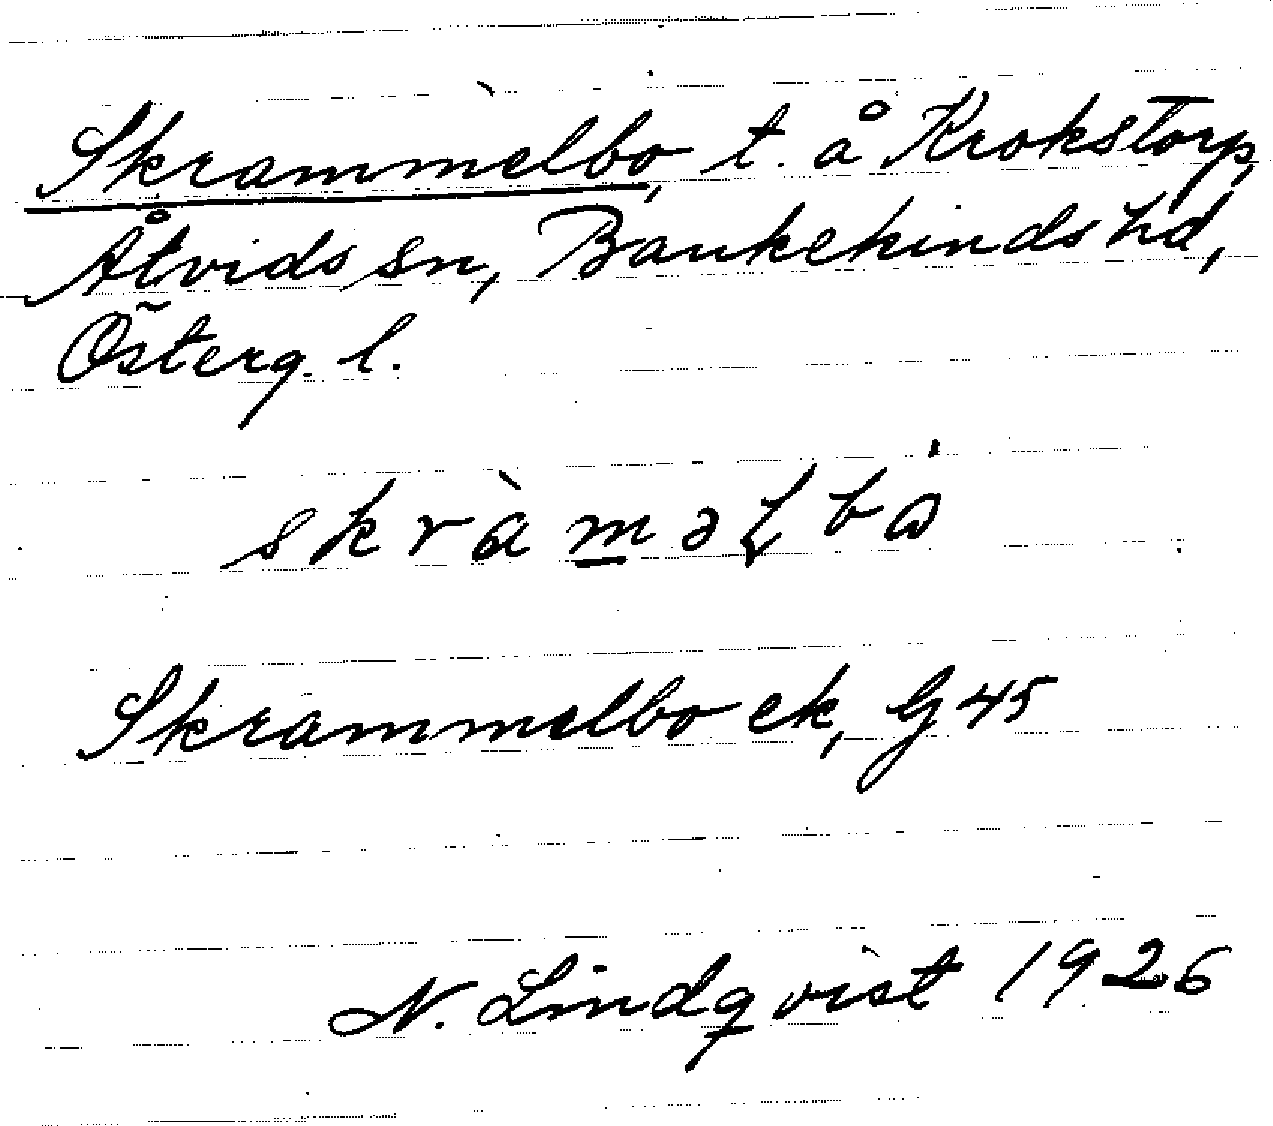 Skrammelbo, t. å Krokstorp,
Åtvids sn, Bankekinds hd,
Österg. l.
skràməɭbω
Skrammelbo ek, G 45
N. Lindqvist 1926